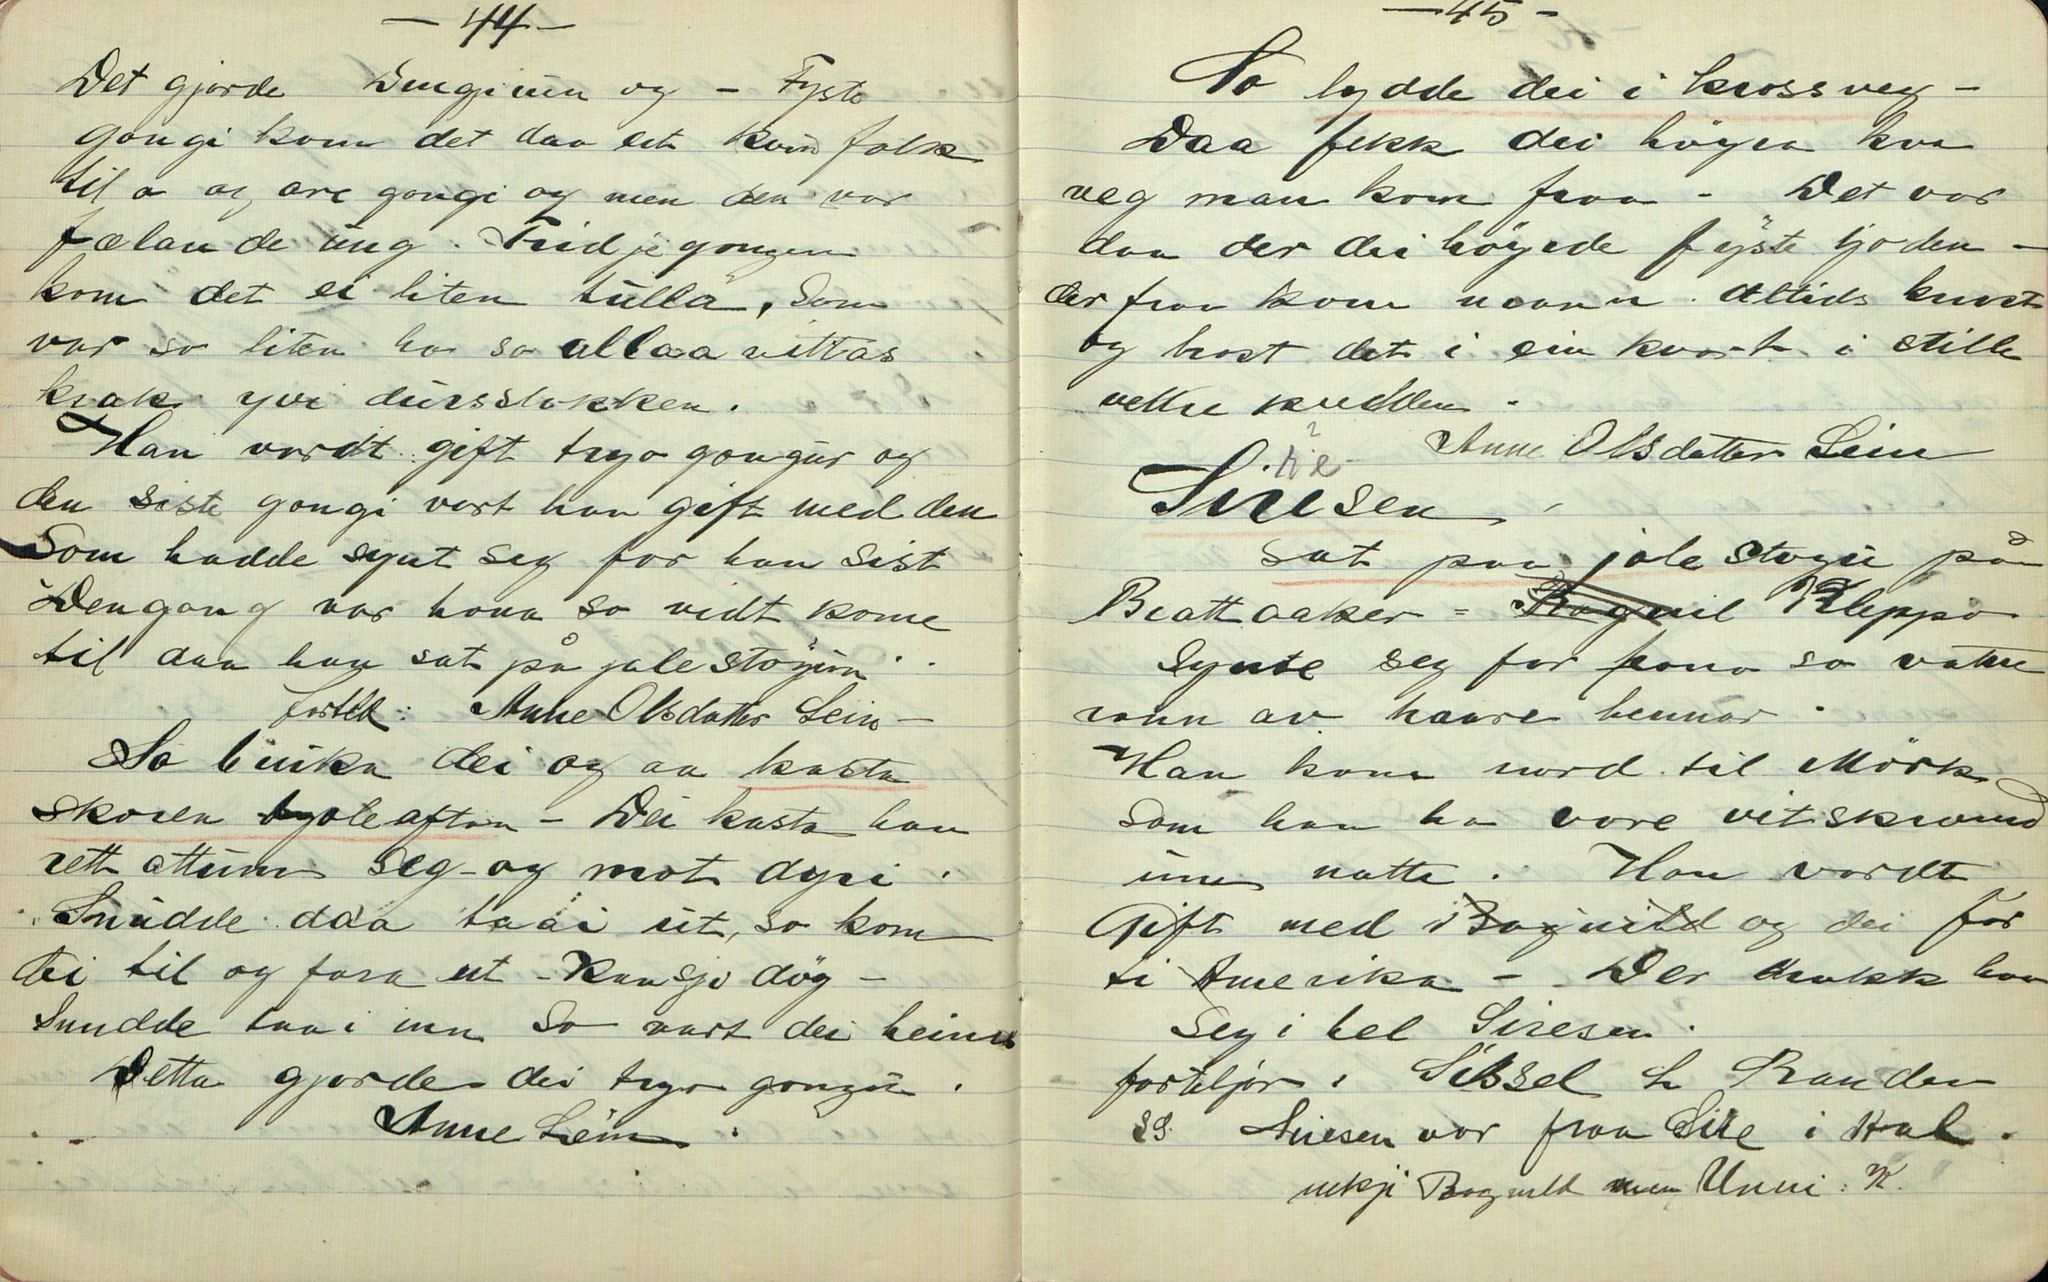 - 44 -
Det gjorde Drengjinn og - Fyste
gongi kom det daa eit kvinnfolk
til o og are gongi og men den var
fælande ung. Tridje gongen
kom det ei liten tulla, som
var so liten ho so allaa vittas
krak yvi dursstokken.
Han vordt gift tryo gongur og
den siste gongi vart han gift med den
som hadde synt seg for han sist
Dengong var hona so vidt kome
til daa han sat på jolestoyin.
fortel: Anne Olsdatter Lein -
So bruka dei og aa kasta
skoren joleaftan - Dei kasta han
rett attum seg - og mot dyri.
Snudde daa taai ut, so kom
dei til og fara ut - Kansje döy -
Snudde taai inn so vart dei heime
Detta gjorde dei tryo gongu.
Anne Lein.
- 45 -
So lydde dei i krossveg -
Daa fekk dei höyra kva
veg man kom fraa - Det var
daa der dei höyrde fyste ljoden -
der fraa kom maan. Altids knast
og brast det i ein kvart i stille
vettre kvelden.
Anne Olsdatter Lein
? re
Siresen,
sat paa jolestoyu på
Brattaaker = Ragnil Kleppo
Synte seg for hono so vatne
rann av haare hennar.
Han kom nord til Mörk
som han ha vore vitskræmd
um natte. Han vordt
Gift med Ragnild og dei for
ti Amerika - Der drakk han
seg i hel Siresen.
forteljar, Sissel L Randen
SS. Siresen var fraa Sire i Hal.
inkji Ragnild men Unni. K.